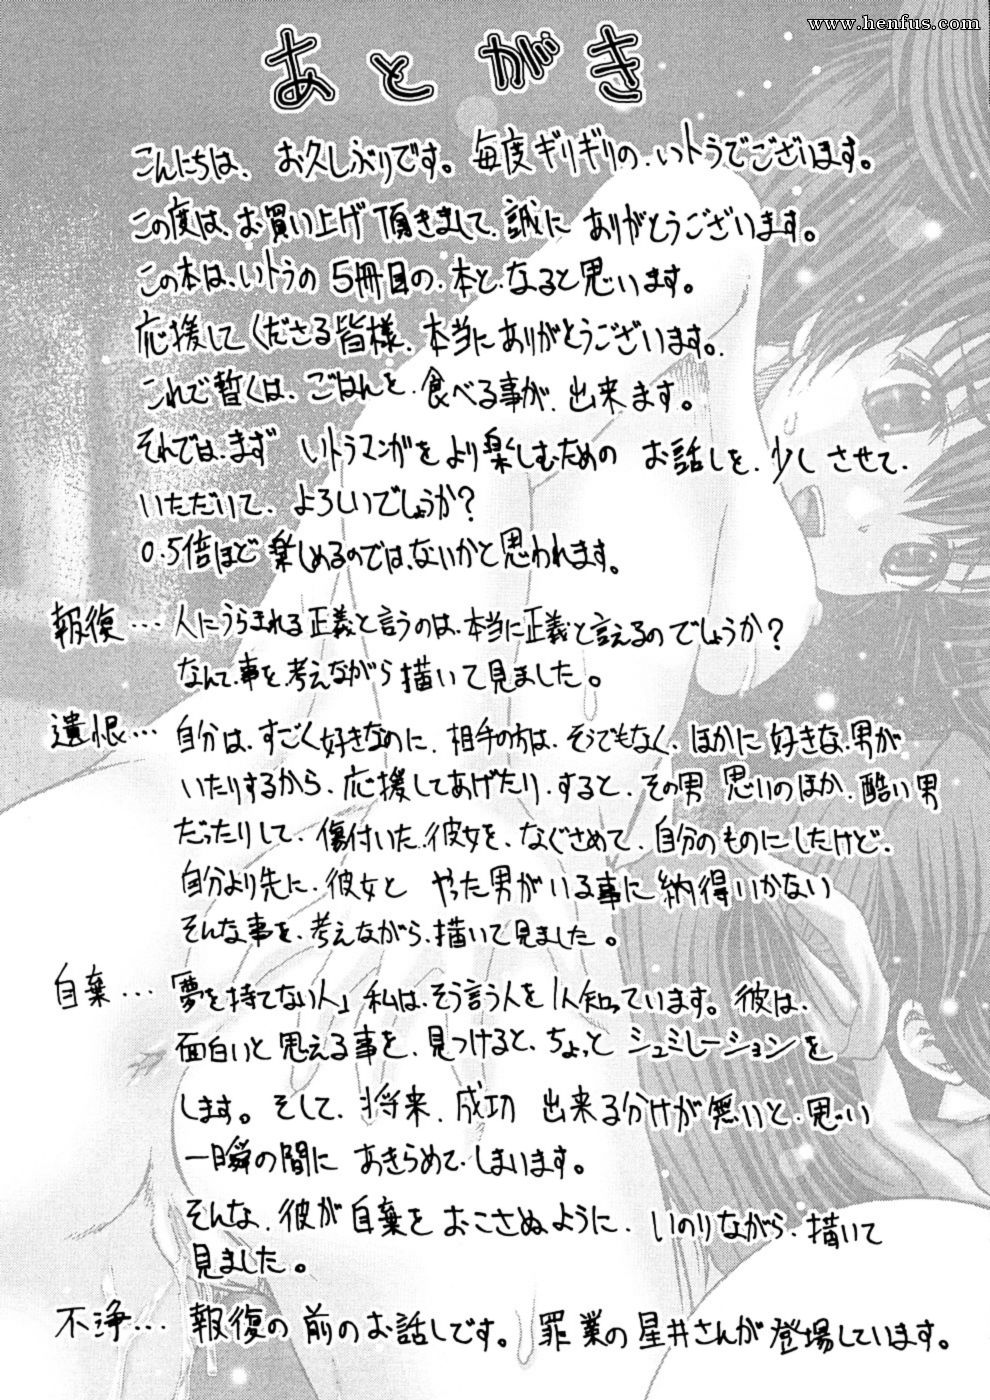 www.henfus.com
あとがき
こんにちは、お久しぶりです。毎度ギリギリの、いトうでございます。
この度は、お買い上げ頂きまして、誠にありがとうございます。
この本は、いトうの5冊目の、本と、なると思います。
応援してくださる皆様、本当にありがとうございます。
これで暫くは、ごはんを、食べる事が、出来ます。
それでは、まず いトうマンガをより楽しむための お話しを、少しさせて、
いただいて、よろしいでしょうか?
0.5倍ほど楽しめるのでは、ないかと思われます。
報復… 人にうらまれる正義と言うのは、本当に正義と言えるのでしょうか?
なんて、事を、考えながら描いて見ました。
遺恨… 自分は、すごく好きなのに、相手の方は、そうでもなく、ほかに好きな、男が
いたりするから、応援してあげたり、すると、その男 思いのほか、酷い男
だったりして、傷付いた、彼女を、なぐさめて、自分のものにしたけど、
自分より先に、彼女と やった男がいる事に納得いかない
そんな事を、考えながら、描いて見ました。
自棄… 「夢を持てない人」私は、そう言う人を1人知っています。彼は、
面白いと思える事を、見つけると、ちょっとシュミレーションを
します。そして、将来、成功 出来る分けが無いと、思い
一瞬の間に あきらめて、しまいます。
そんな、彼が自棄をおこさぬように、いのりながら、描いて
見ました。
不浄… 報復の前のお話しです。罪業の星井さんが登場しています。